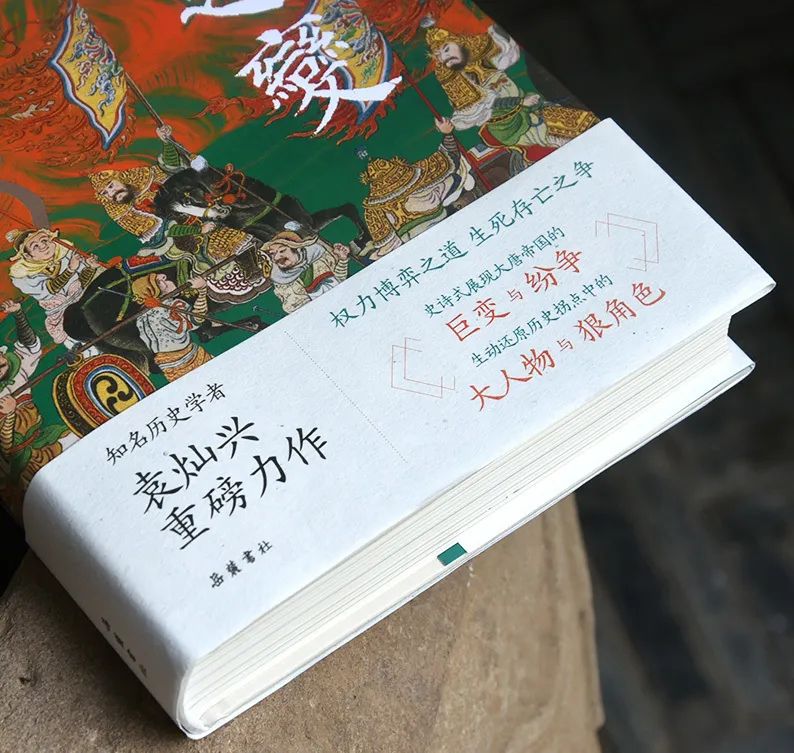 變
权力博弈之道 生死存亡之争
史诗式展现大唐帝国的
巨变与纷争
生动还原历史拐点中的
大人物与狠角色
知名历史学者
袁灿兴
重磅力作
岳麓書社